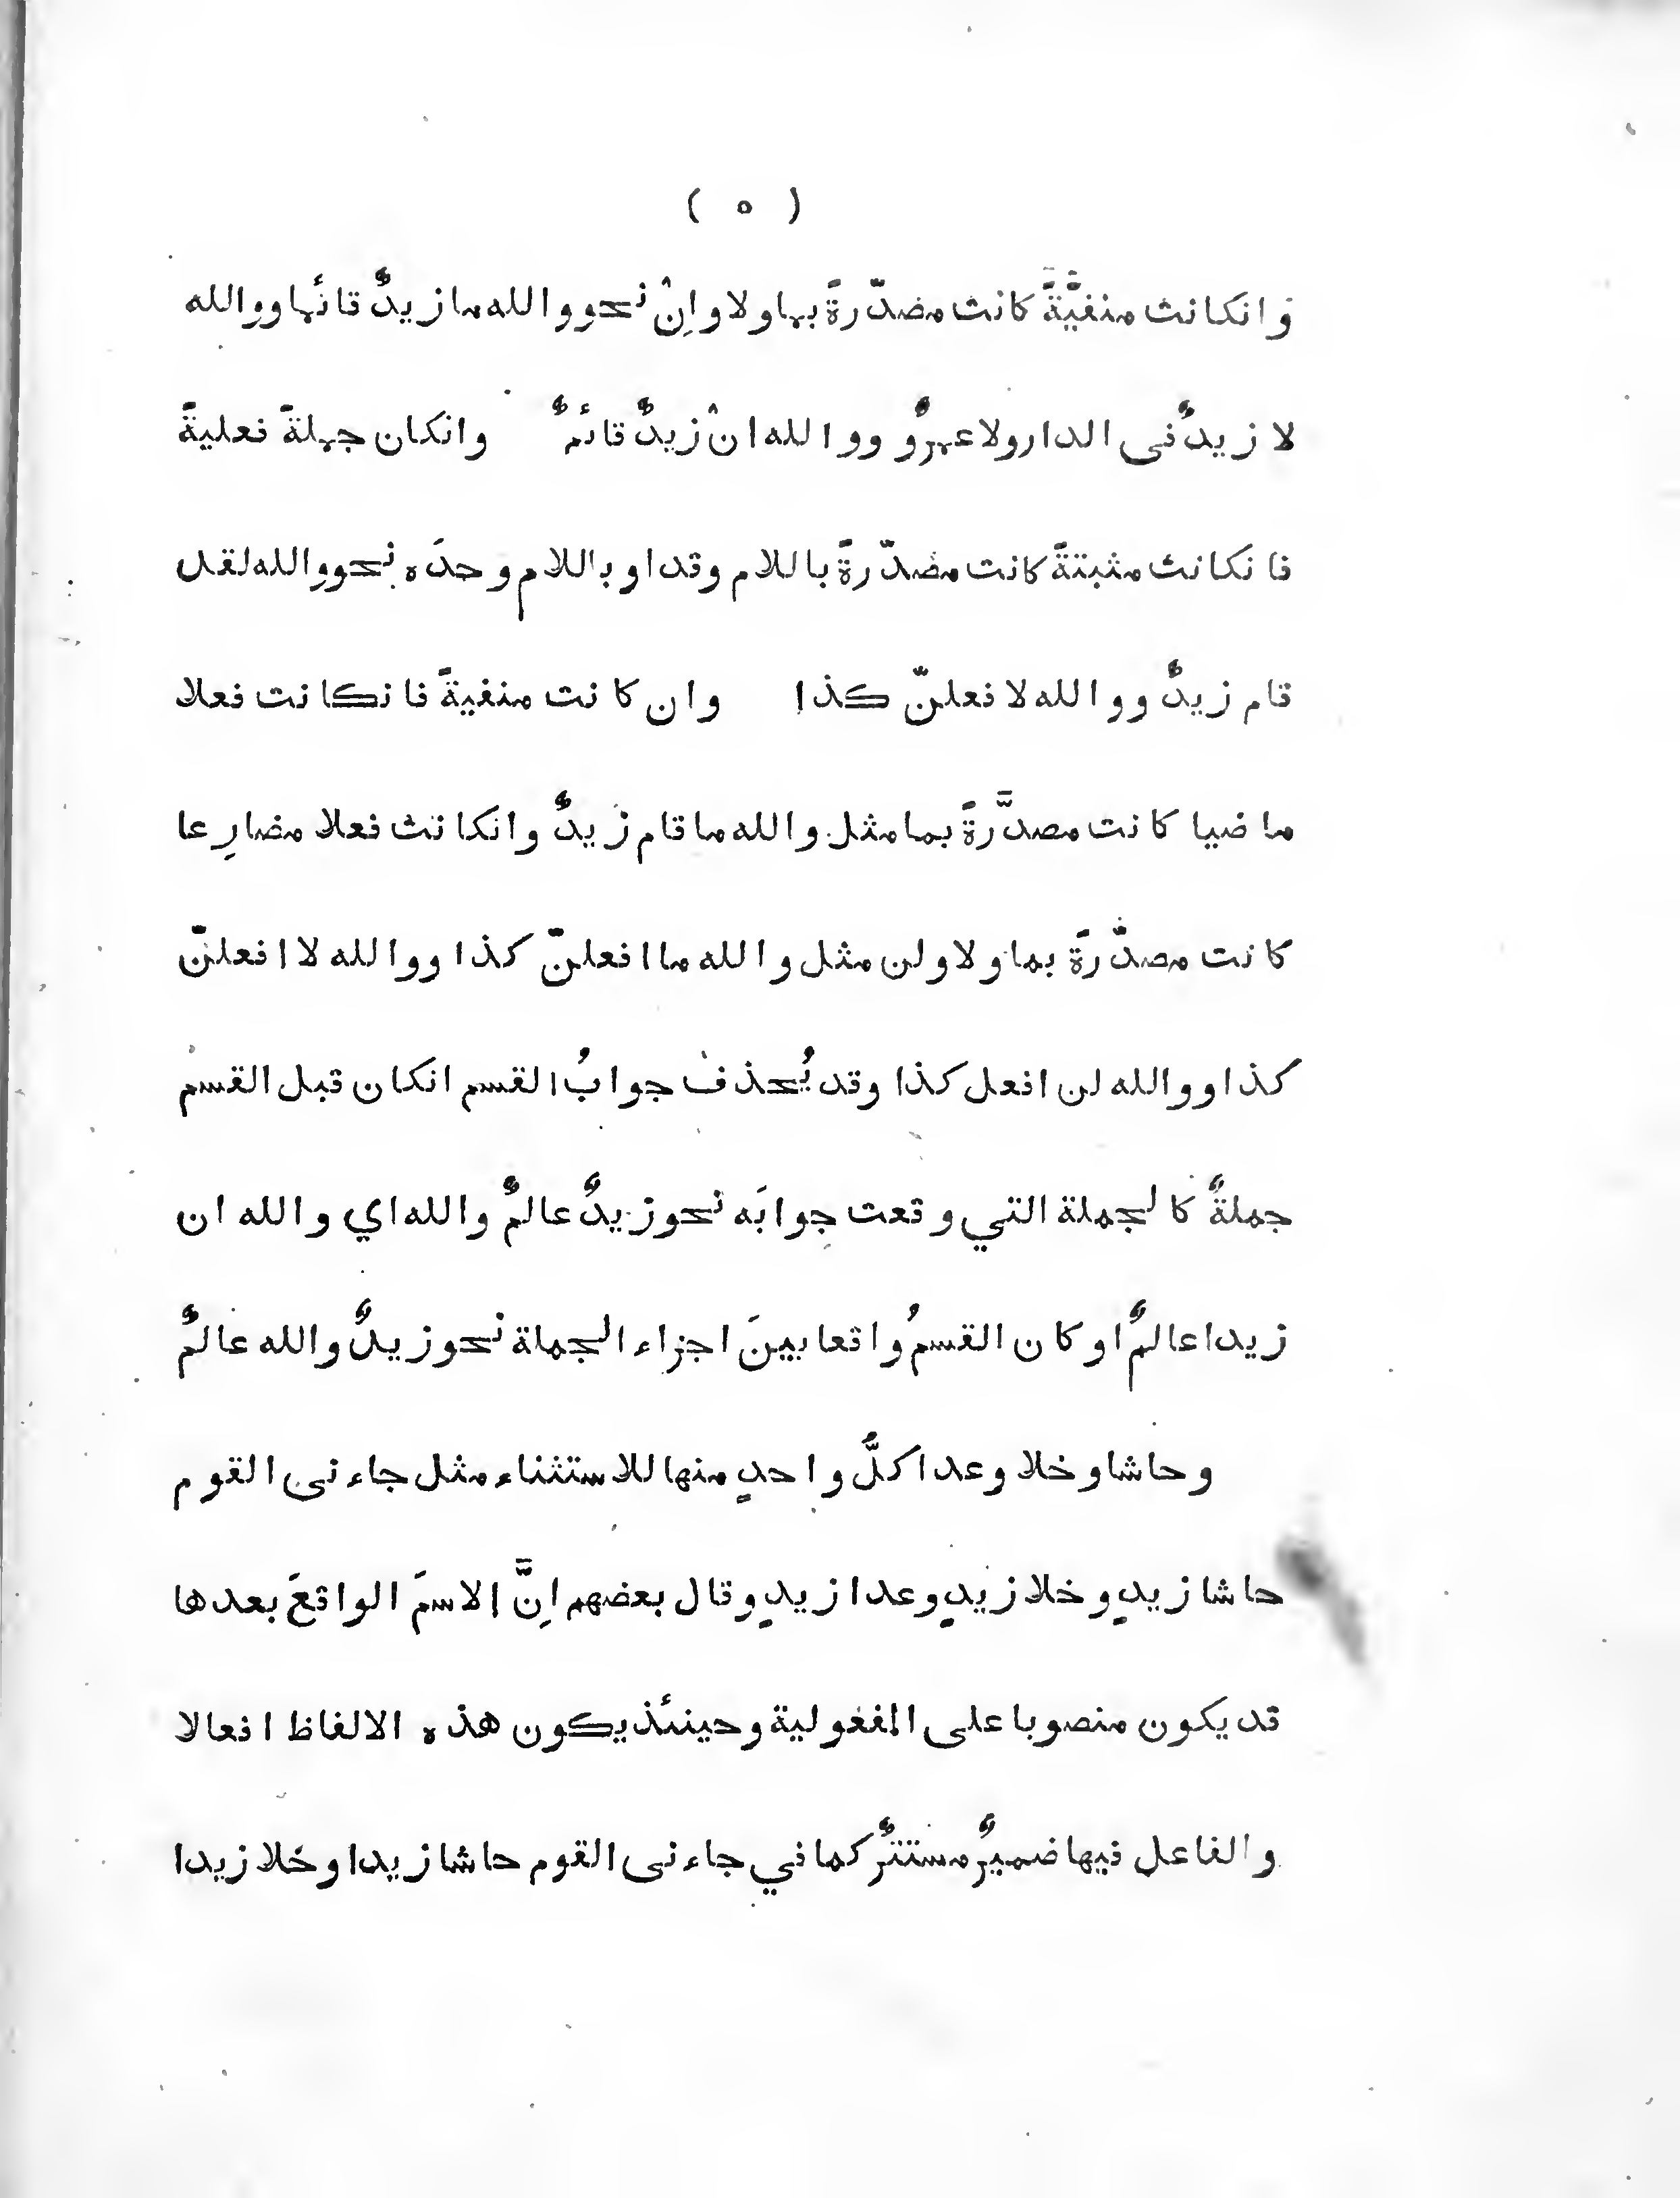 ( ٥ )
وانكانت منفيّةً كانت مصدّرةً بما ولا وانْ نحو والله ما زيدٌ قائما ووالله
لا زيدٌ فى الدار ولا عمرٌو ووالله انْ زيدٌ قائمٌ وانكان جملةً فعليةً
فانكانت مثبتةً كانت مصدّرةً باللام وقد او باللام وحدَه نحو والله لقد
قام زيدٌ ووالله لافعلنّ كذا وان كانت منفيةً فانكانت فعلا
ماضيا كانت مصدَّرةً بما مثل والله ما قام زيدٌ وانكانت فعلا مضارِعا
كانت مصدّرةً بما ولا ولن مثل والله ما افعلنّ كذا ووالله لا افعلنّ
كذا ووالله لن افعل كذا وقد يُحذف جوابُ القسم انكان قبل القسم
جملةٌ كالجملة التي وقعت جوابَه نحو زيدٌ عالمٌ والله اي والله ان
زيدا عالمٌ او كان القسمُ واقعا بينَ اجزاء الجملة نحو زيدٌ والله عالمٌ
وحاشا وخلا وعدا كلُّ واحدٍ منها للاستثناء مثل جاءنى القوم
حاشا زيدٍ وخلا زيدٍ وعدا زيدٍ وقال بعضهم اِنَّ الاسمَ الواقعَ بعدها
قد يكون منصوبا على المفعولية وحينئذ يكون هذه الالفاظ افعالا
والفاعل فيها ضميرٌ مستترٌ كما في جاءنى القوم حاشا زيدا وخلا زيدا